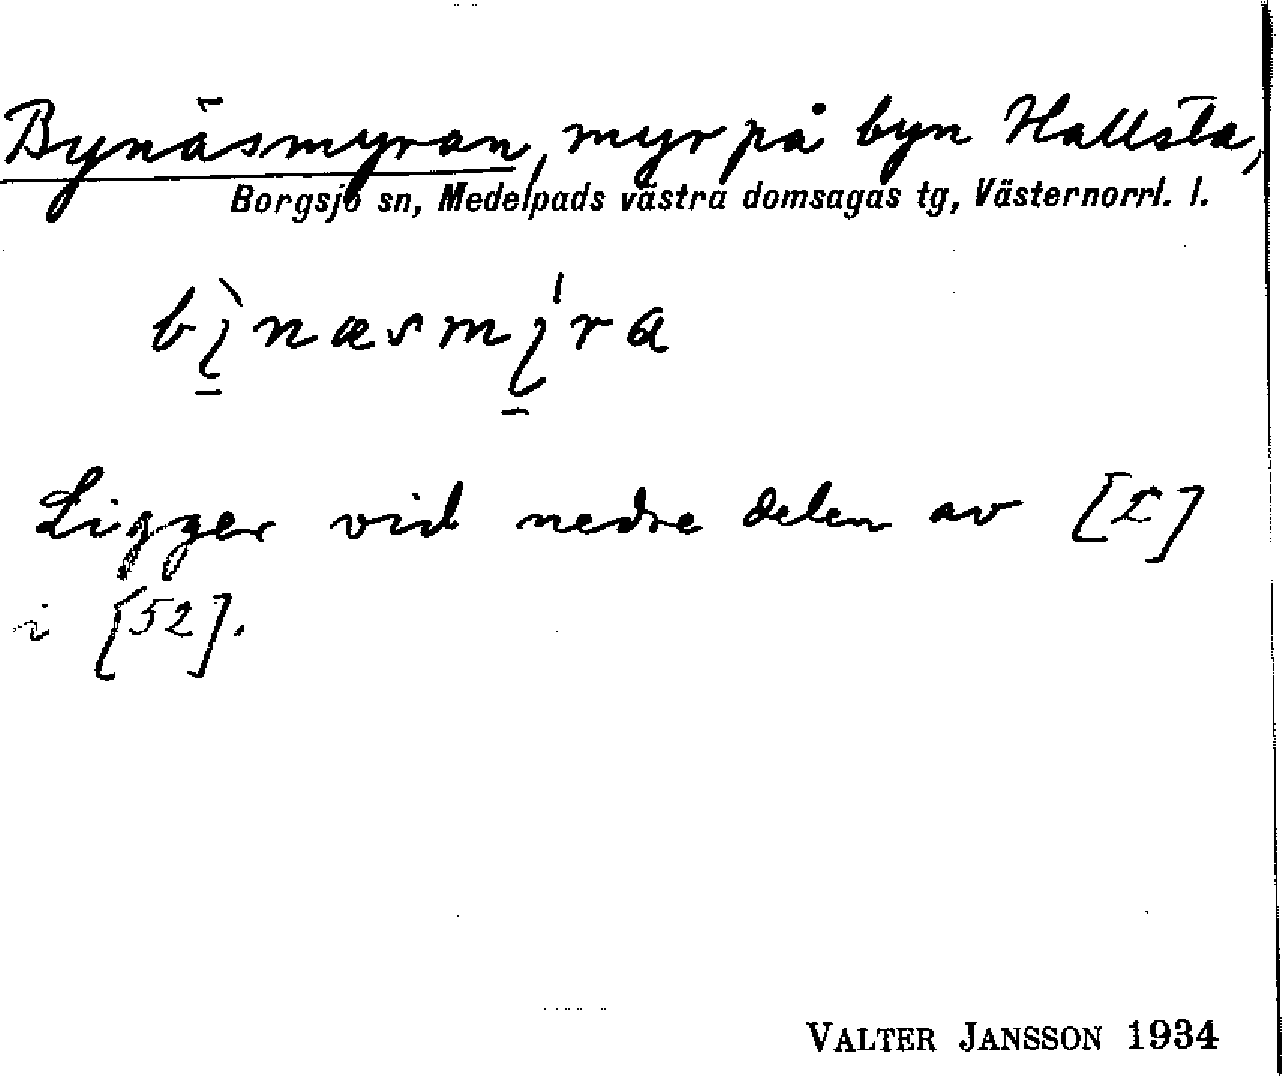 Bynäsmyran, myr på byn Hallsta,
Borgsjö sn, Medelpads västra domsagas tg, Västernorrl. l.
Ligger vid nedre delen av [£]
i [52].
VALTER JANSSON 1934